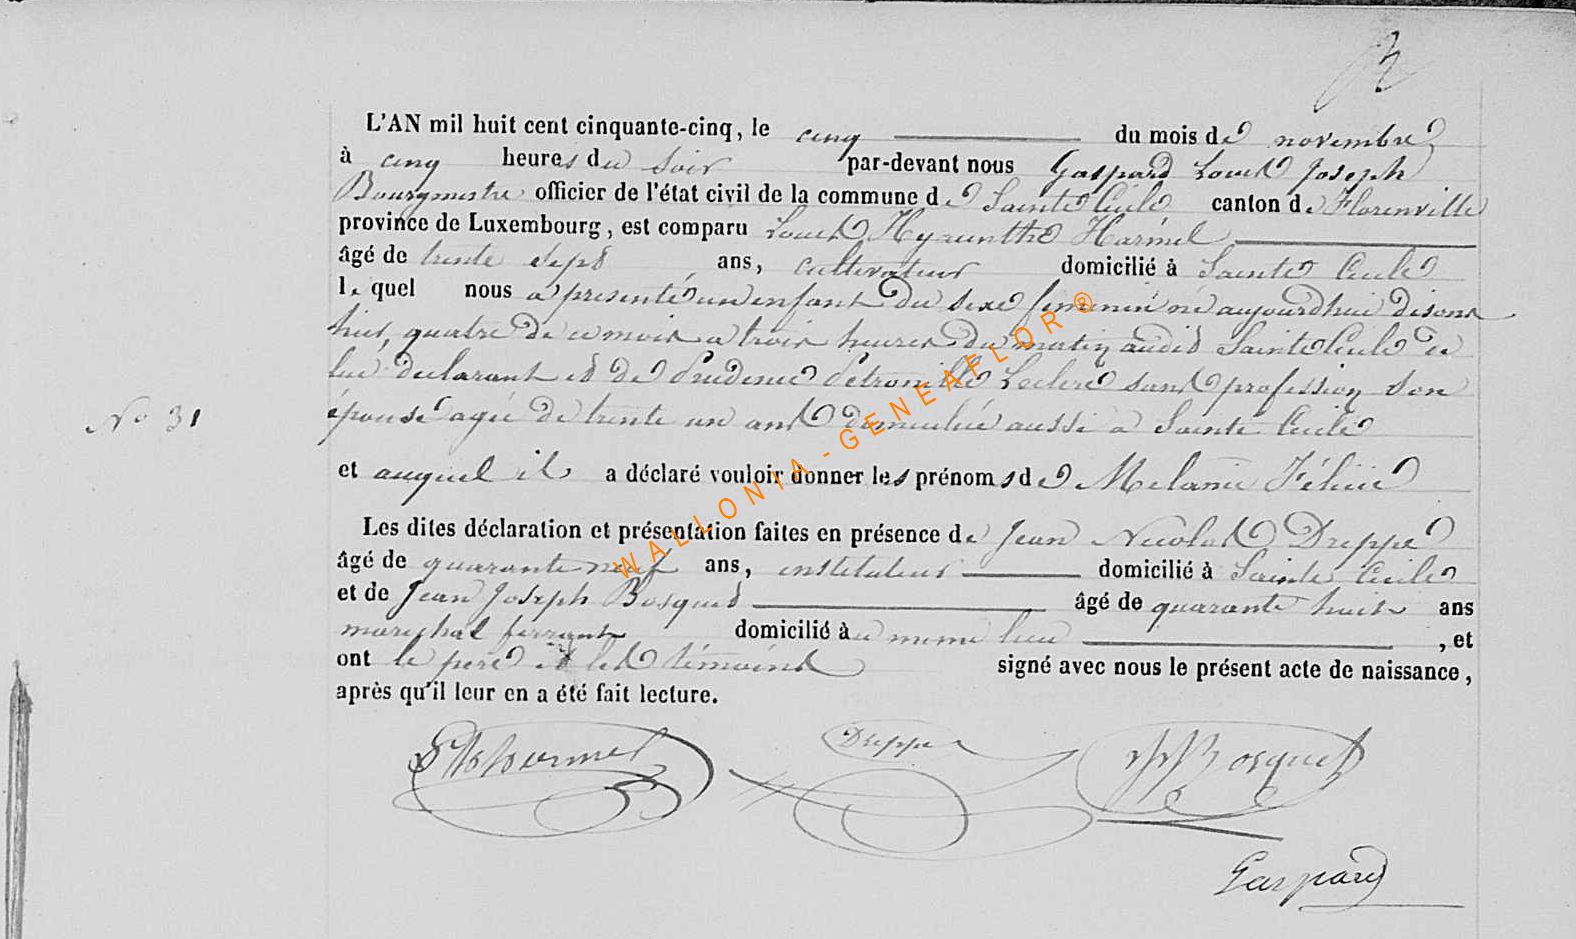 L'AN mil huit cent cinquante-cinq, le cinq du mois de novembre
à cinq heures du soir par-devant nous Gaspard Louis Joseph
Bourgmestre officier de l'état civil de la commune de Sainte Cécile canton de Florenville
province de Luxembourg, est comparu Louis Hyacinthe Harmel
âgé de trente sept ans, cultivateur domicilié à Sainte Cecile
le quel nous a presenté un enfant du sexe feminin né aujourdhui disons
hier, quatre de ce mois a trois heures du matin audit Sainte Cecile de
lui declarant et de Prudence Petronille Leclere sans profession son
épouse agée de trente un ans domiciliée aussi a Sainte Cecile
No 31
et auquel il a déclaré vouloir donner les prénoms de Melanie Félicie
Les dites déclaration et présentation faites en présence de Jean Nicolas Dreppe
âgé de quarante neuf ans, instituteur domicilié à Sainte Cecile
et de Jean Joseph Bosquet âgé de quarante huit ans
marechal ferrant domicilié à u meme lieu , et
ont le pere et les témoins signé avec nous le présent acte de naissance,
après qu'il leur en a été fait lecture.
Dreppe
Bosquet
Gaspard
WALLONIA-GENEAFLOR®